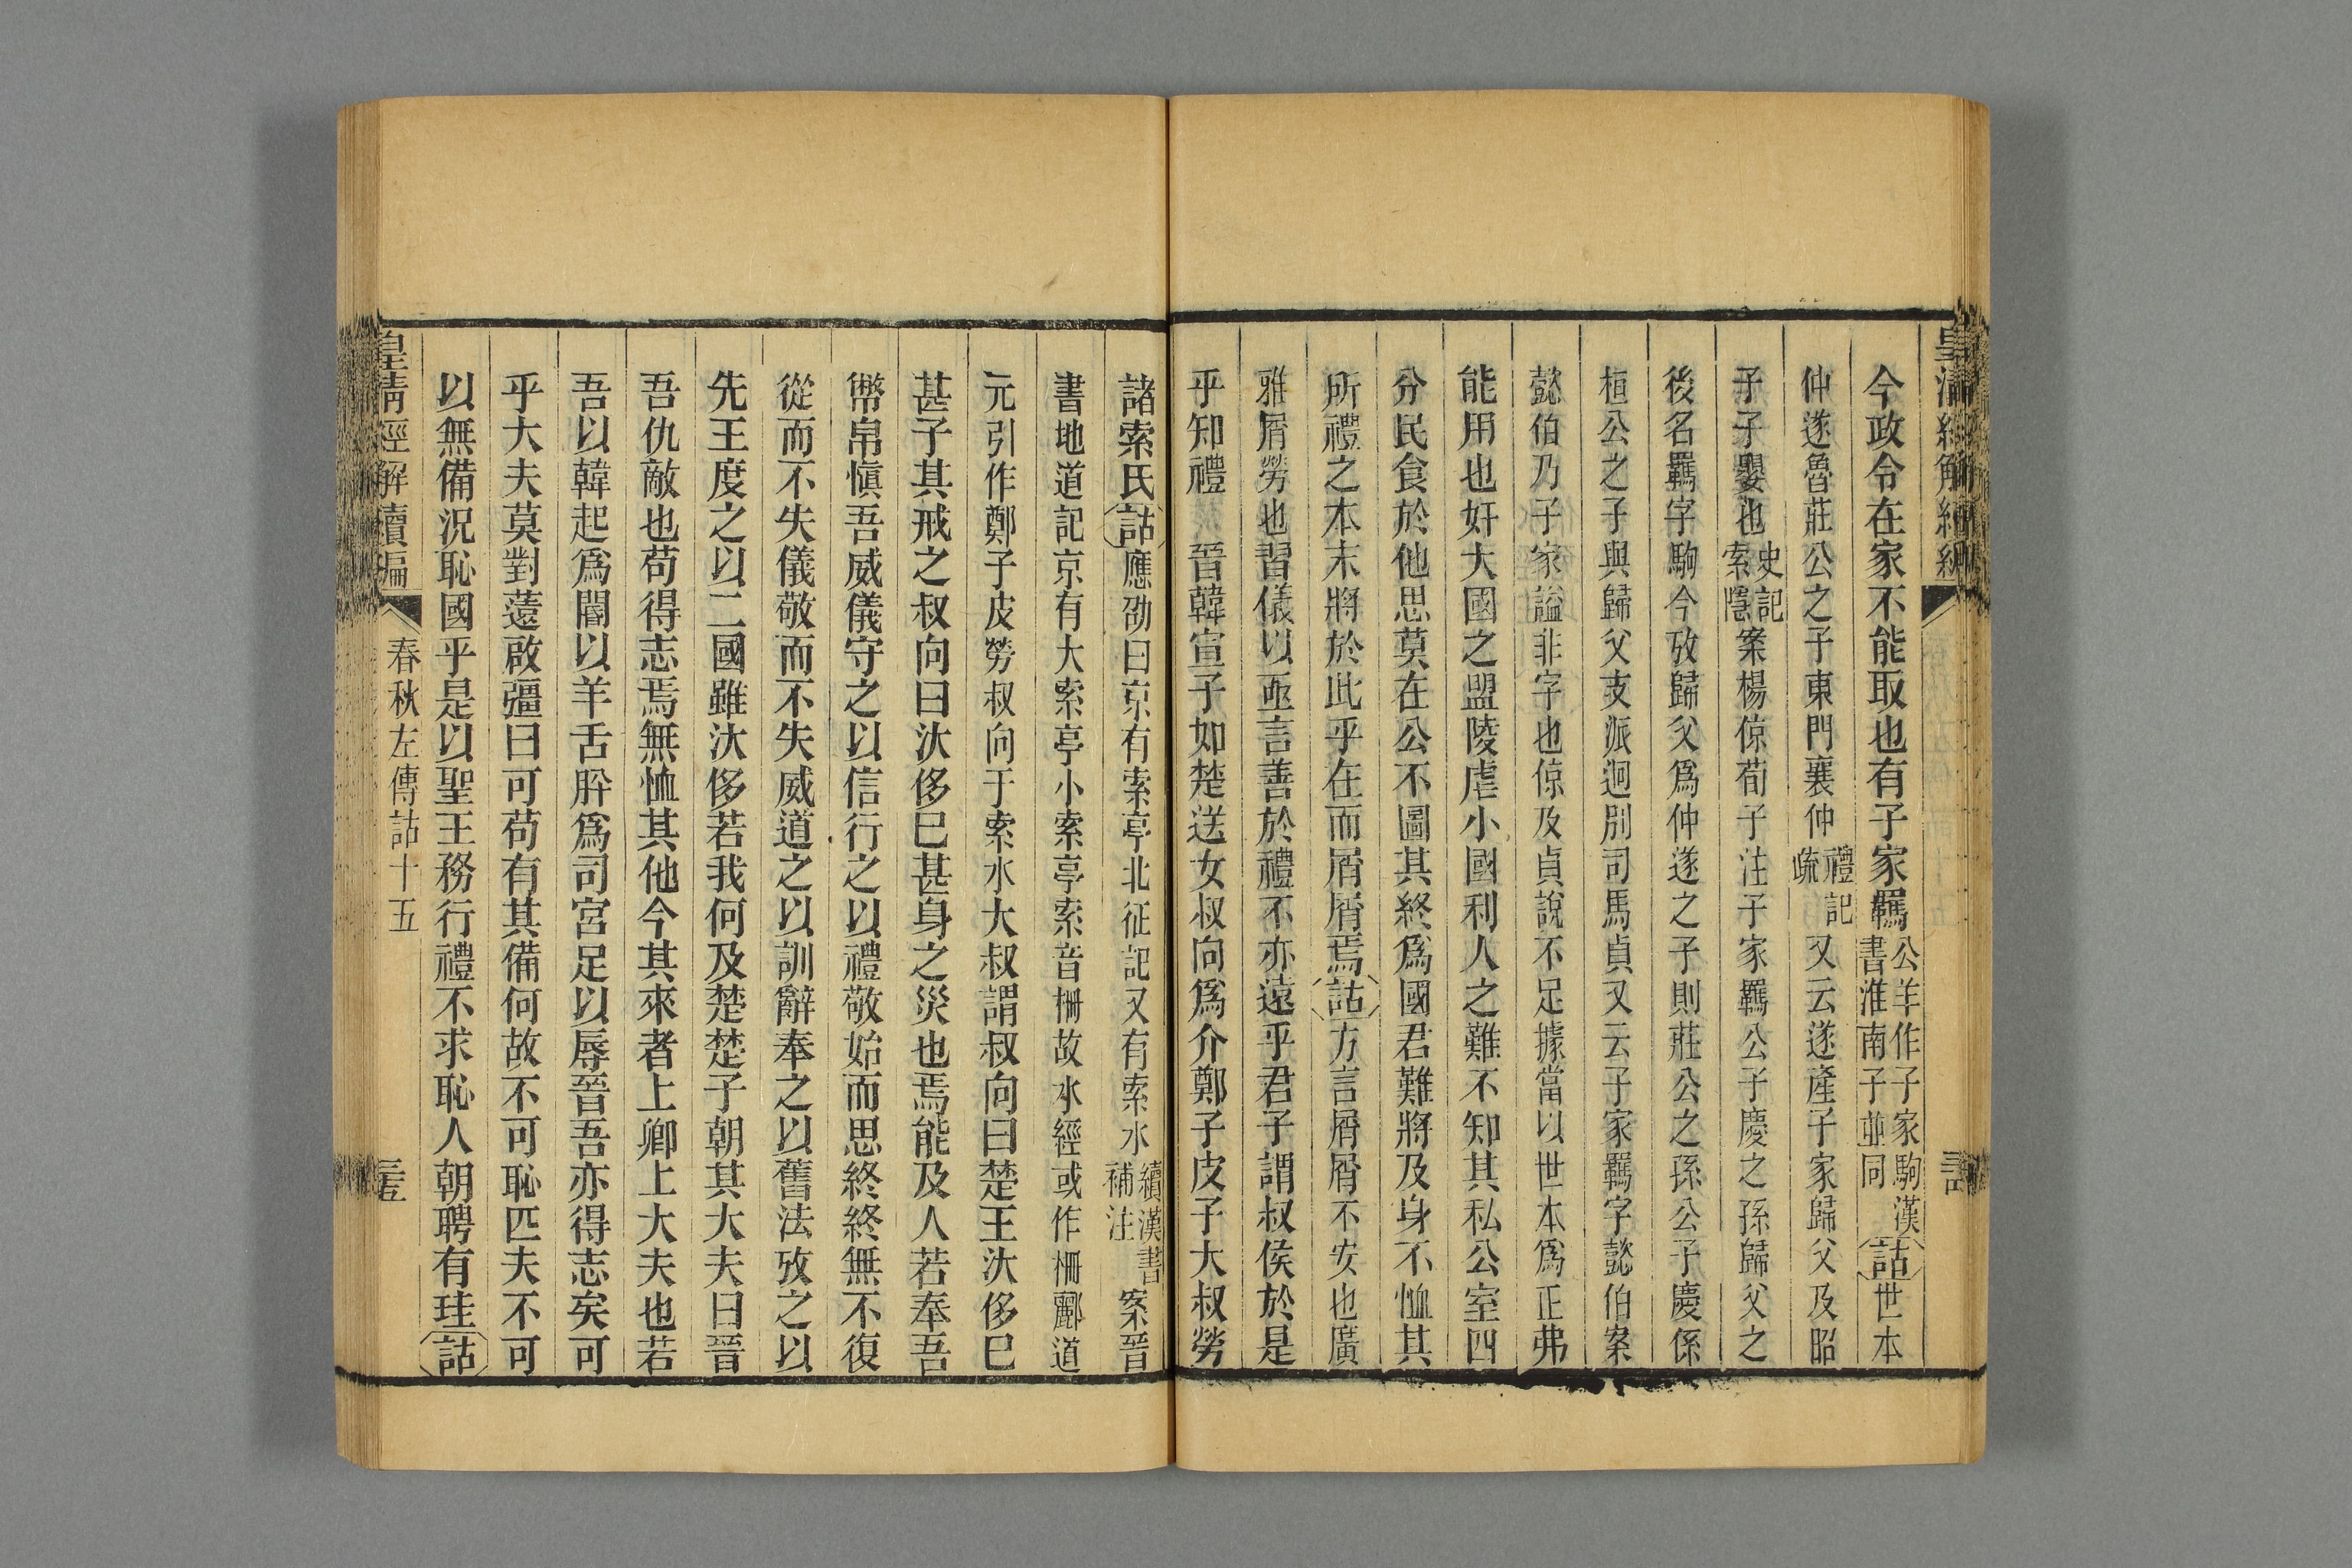 皇清經解續編
今政令在家不能取也有子家羈公羊作子家駒漢書淮南子並同詁世本
仲遂魯莊公之子東門襄仲禮記疏又云遂產子家歸父及昭
子子嬰也史記索隱案楊倞荀子注子家羈公子慶之孫歸父之
後名羈字駒今攷歸父爲仲遂之子則莊公之孫公子慶係
桓公之子與歸父支派迥別司馬貞又云子家羈字懿伯案
懿伯乃子家謚非字也倞及貞說不足據當以世本爲正弗
能用也奸大國之盟陵虐小國利人之難不知其私公室四
分民食於他思莫在公不圖其終爲國君難將及身不恤其
所禮之本末將於此乎在而屑屑焉詁方言屑屑不安也廣
雅屑勞也習儀以亟言善於禮不亦遠乎君子謂叔侯於是
乎知禮 晉韓宣子如楚送女叔向爲介鄭子皮子大叔勞
諸索氏詁應劭曰京有索亭北征記又有索水續漢書補注案晉
書地道記京有大索亭小索亭索音柵故水經或作柵酈道
元引作鄭子皮勞叔向于索水大叔謂叔向曰楚王汏侈已
甚子其戒之叔向曰汏侈已甚身之災也焉能及人若奉吾
幣帛愼吾威儀守之以信行之以禮敬始而思終終無不復
從而不失儀敬而不失威道之以訓辭奉之以舊法攷之以
先王度之以二國雖汏侈若我何及楚楚子朝其大夫曰晉
吾仇敵也苟得志焉無恤其他今其來者上卿上大夫也若
吾以韓起爲閽以羊舌肸爲司宮足以辱晉吾亦得志矣可
乎大夫莫對薳啟彊曰可苟有其備何故不可恥匹夫不可
以無備況恥國乎是以聖王務行禮不求恥人朝聘有珪詁
皇清經解續編 春秋左傳詁十五